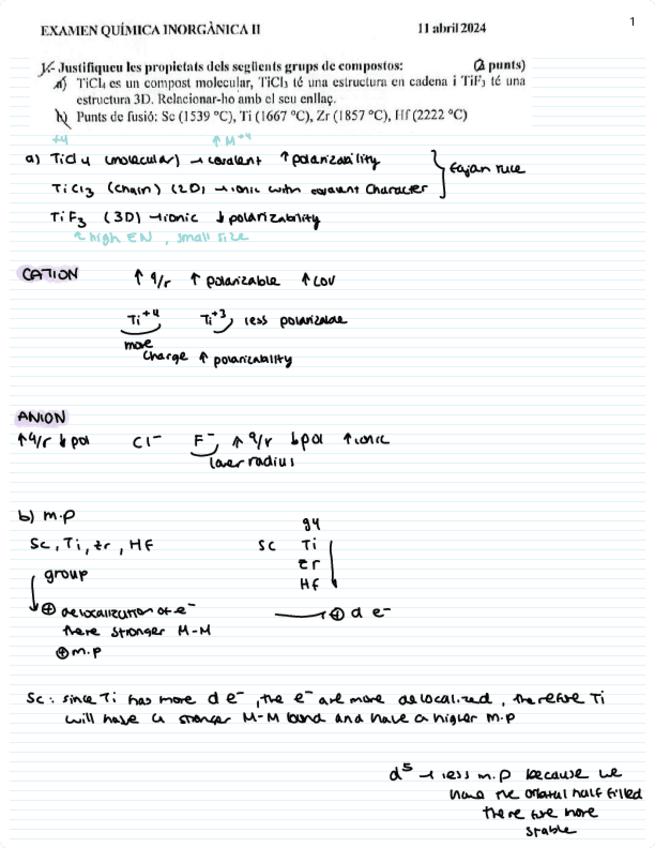 1
EXAMEN QUÍMICA INORGÀNICA II 11 abril 2024
1.- Justifiqueu les propietats dels següents grups de compostos: (2 punts)
a) TiCl₄ es un compost molecular, TiCl₃ té una estructura en cadena i TiF₃ té una
estructura 3D. Relacionar-ho amb el seu enllaç.
b) Punts de fusió: Sc (1539 ºC), Ti (1667 ºC), Zr (1857 ºC), Hf (2222 ºC)
+4 ↑ M⁺⁴
a) TiCl₄ (molecular) → covalent ↑ polarizability
TiCl₃ (chain) (2D) → ionic with covalent character } Fajan rule
TiF₃ (3D) → ionic ↓ polarizability
↑ high EN, small size
CATION ↑ q/r ↑ polarizable ↑ cov
Ti⁺⁴ Ti⁺³ less polarizable
more
charge ↑ polarizability
ANION
↑ q/r ↓ pol Cl⁻ F⁻ ↑ q/r ↓ pol ↑ ionic
lower radius
b) m.p
Sc, Ti, Zr, Hf
g4
Sc Ti
Zr
Hf
group
⊕ delocalization of e⁻ → ⊕ d e⁻
there stronger M-M
⊕ m.p
Sc: since Ti has more d e⁻, the e⁻ are more delocalized, therefore Ti
will have a stronger M-M bond and have a higher m.p
d⁵ → less m.p because we
have the orbital half filled
there are more
stable